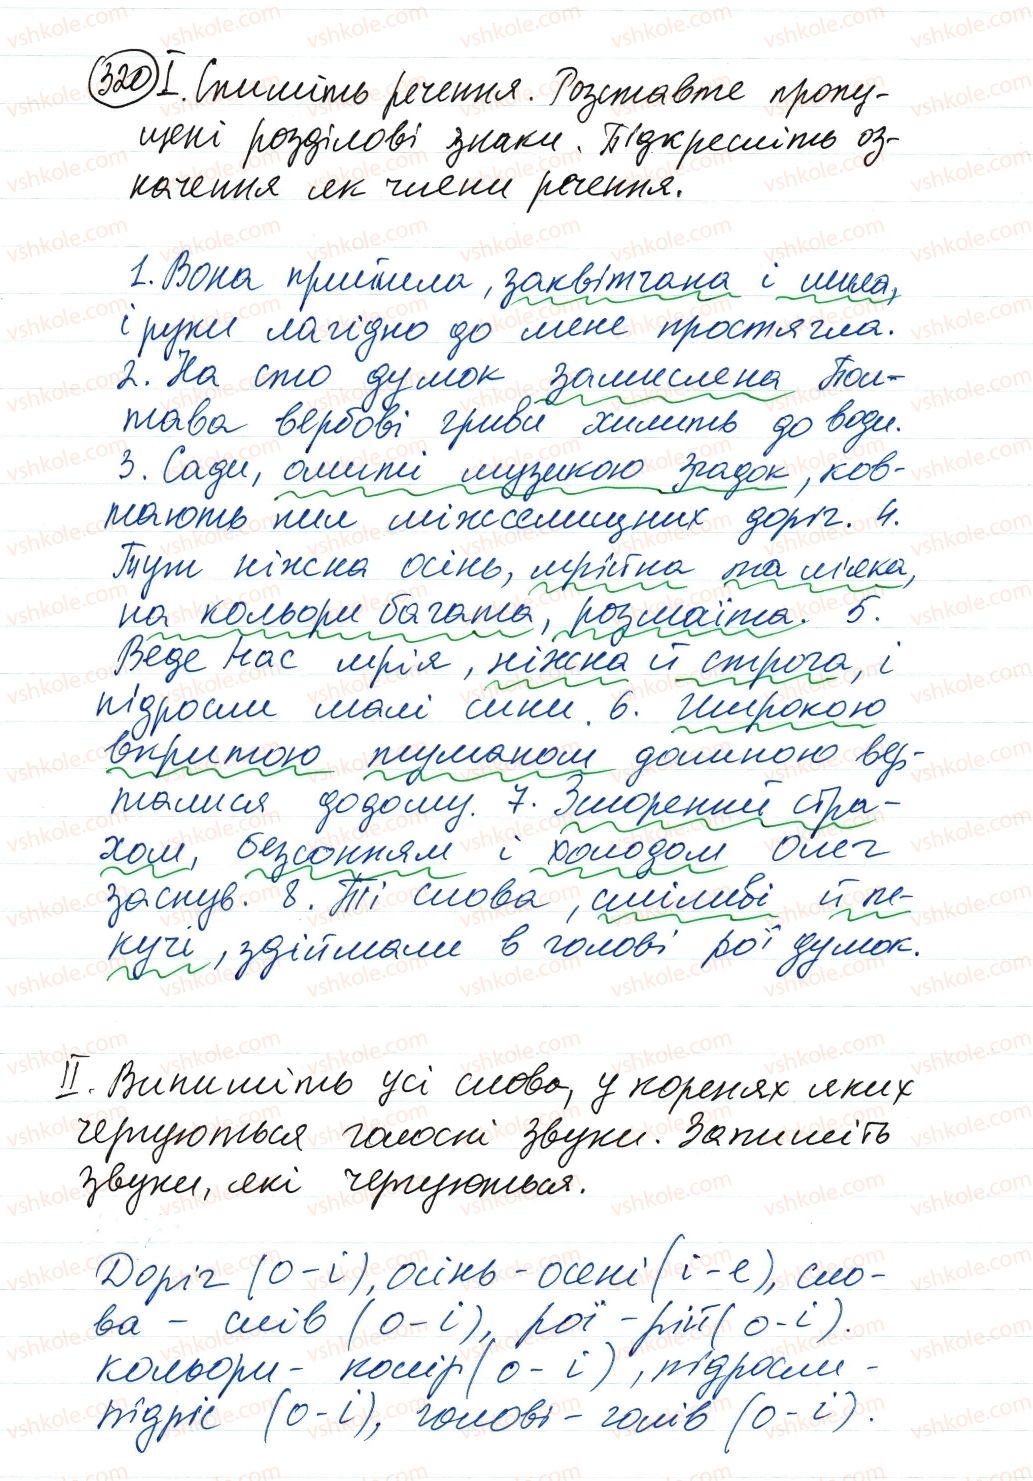 320 I. Спишіть речення. Розставте пропу-
щені розділові знаки. Підкресліть оз-
начення як члени речення.
1. Вона прийшла, заквітчана і мила,
і руки лагідно до мене простягла.
2. На сто думок замислена Пол-
тава вербові гриви хилить до води.
3. Сади, омиті музикою згадок, ков-
тають пил міжселищних доріг. 4.
Тут ніжна осінь, мрійна та м'яка,
на кольори багата, розмаїта. 5.
Веде нас мрія, ніжна й строга, і
підросли малі сини. 6. Широкою
вкритою туманом долиною вер-
талися додому. 7. Зморений стра-
хом, безсонням і холодом Олег
заснув. 8. Ті слова, сміливі й пе-
кучі, здіймали в голові рої думок.
II. Випишіть усі слова, у коренях яких
чергуються голосні звуки. Запишіть
звуки, які чергуються.
Доріг (о-і), осінь - осені (і-е), сло-
ва - слів (о-і), рої - рій (о-і).
кольори - колір (о-і), підросли -
підріс (о-і), голові - голів (о-і).